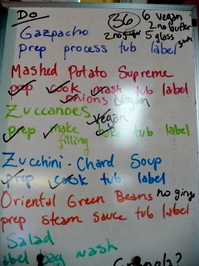 Do
36 6 vegan
2 no butter
Gazpacho 2 no 5 glass
prep process tub label
Mashed Potato Supreme
prep cook mash tub label
onions vegan
Zuccanoes
vegan
prep make filling tub label
Zucchini-Chard Soup
prep cook tub label
Oriental Green Beans no ging
prep steam sauce tub label
Salad
label bag wash